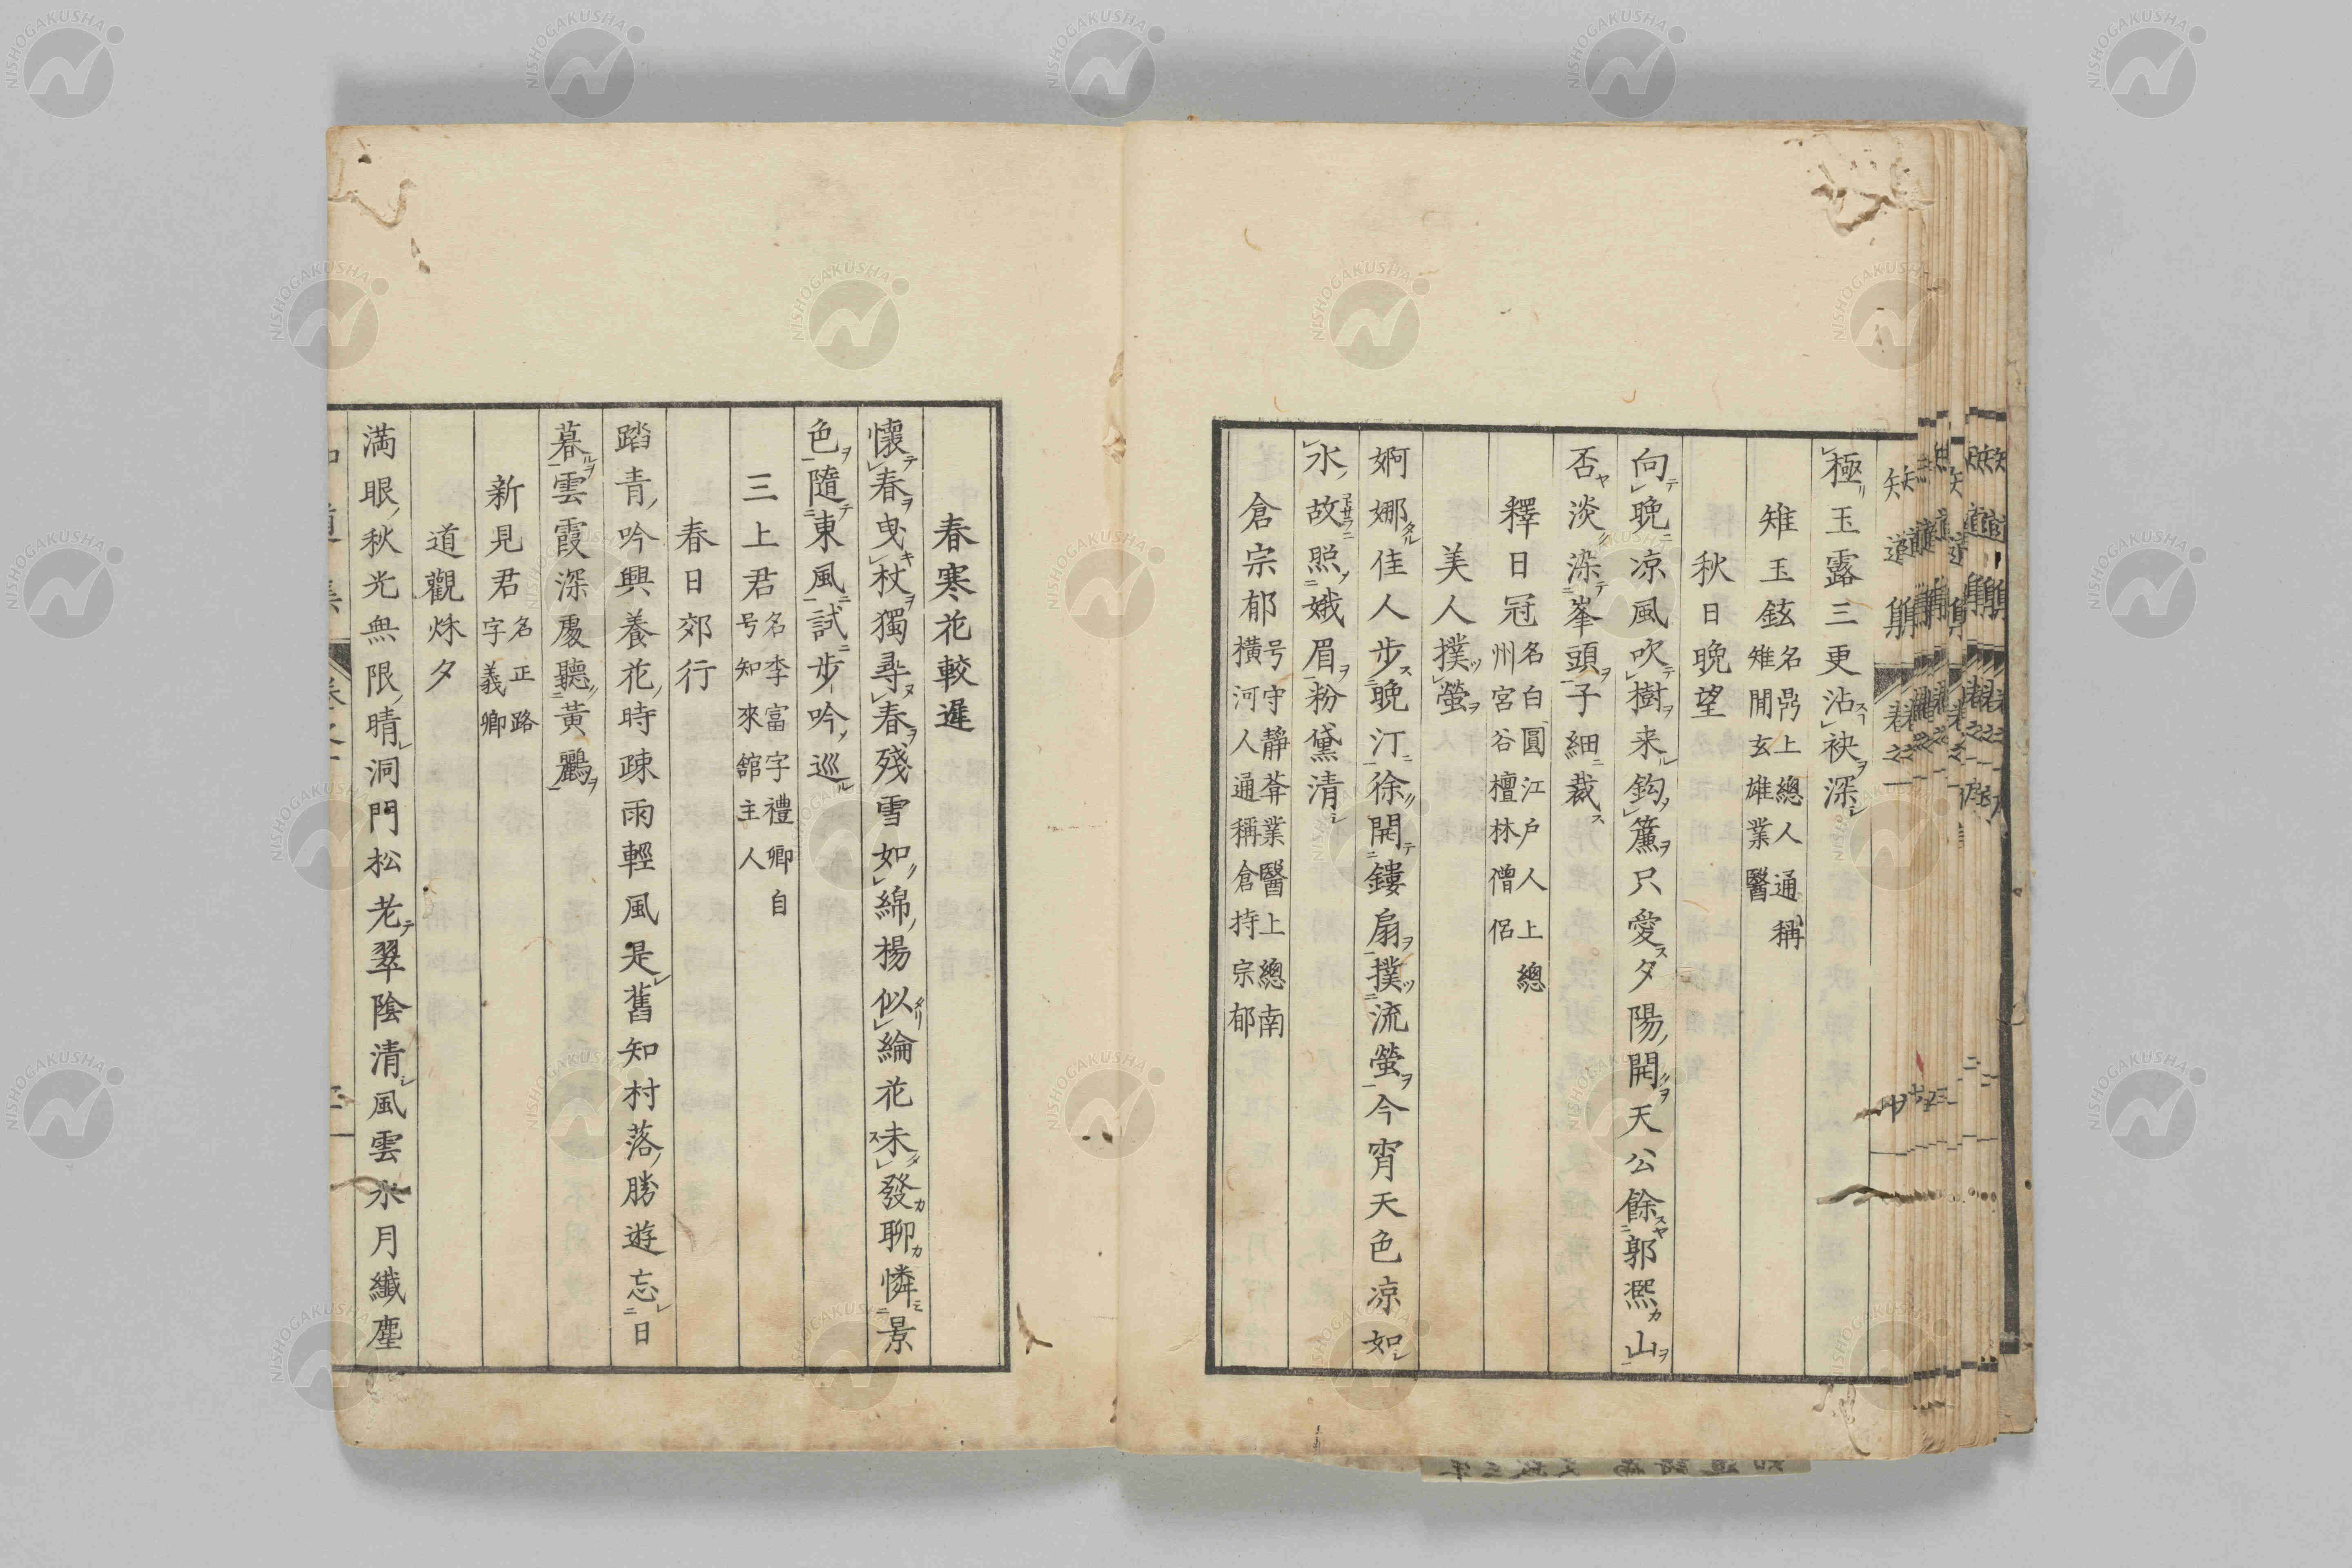 極玉露三更沾袂深
雉玉鉉名鼎上總人通稱雉閒玄雄業醫
秋日晚望
向晚涼風吹樹来鈎簾只愛夕陽開天公餘郭熙山
否淡染峯頭子細裁
釋日冠名白圓江戶人上總州宮谷檀林僧侶
美人撲螢
婀娜佳人步晚汀徐開鏤扇撲流螢今宵天色涼如
水故照娥眉粉黛清
倉宗郁号守靜菴業醫上總南橫河人通稱倉持宗郁
春寒花較遲
懷春曳杖獨尋春殘雪如綿楊似綸花未發聊憐景
色隨東風試步吟巡
三上君名李富字禮卿自号知來舘主人
春日郊行
踏青吟興養花時疎雨輕風是舊知村落勝遊忘日
暮雲霞深處聽黃鸝
新見君名正路字義卿
道觀秌夕
満眼秋光無限晴洞門松老翠陰清風雲氷月纖塵
NISHOGAKUSHA